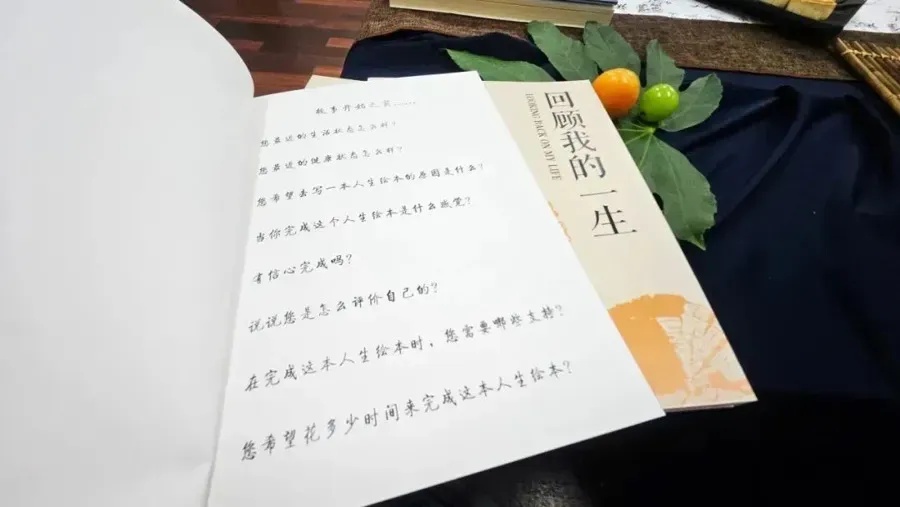 故事开始之前……
您最近的生活状态怎么样?
您最近的健康状态怎么样?
您希望去写一本人生绘本的原因是什么?
当你完成这个人生绘本是什么感觉?
有信心完成吗?
说说您是怎么评价自己的?
在完成这本人生绘本时,您需要哪些支持?
您希望花多少时间来完成这本人生绘本?
回顾我的一生
LOOKING BACK ON MY LIFE